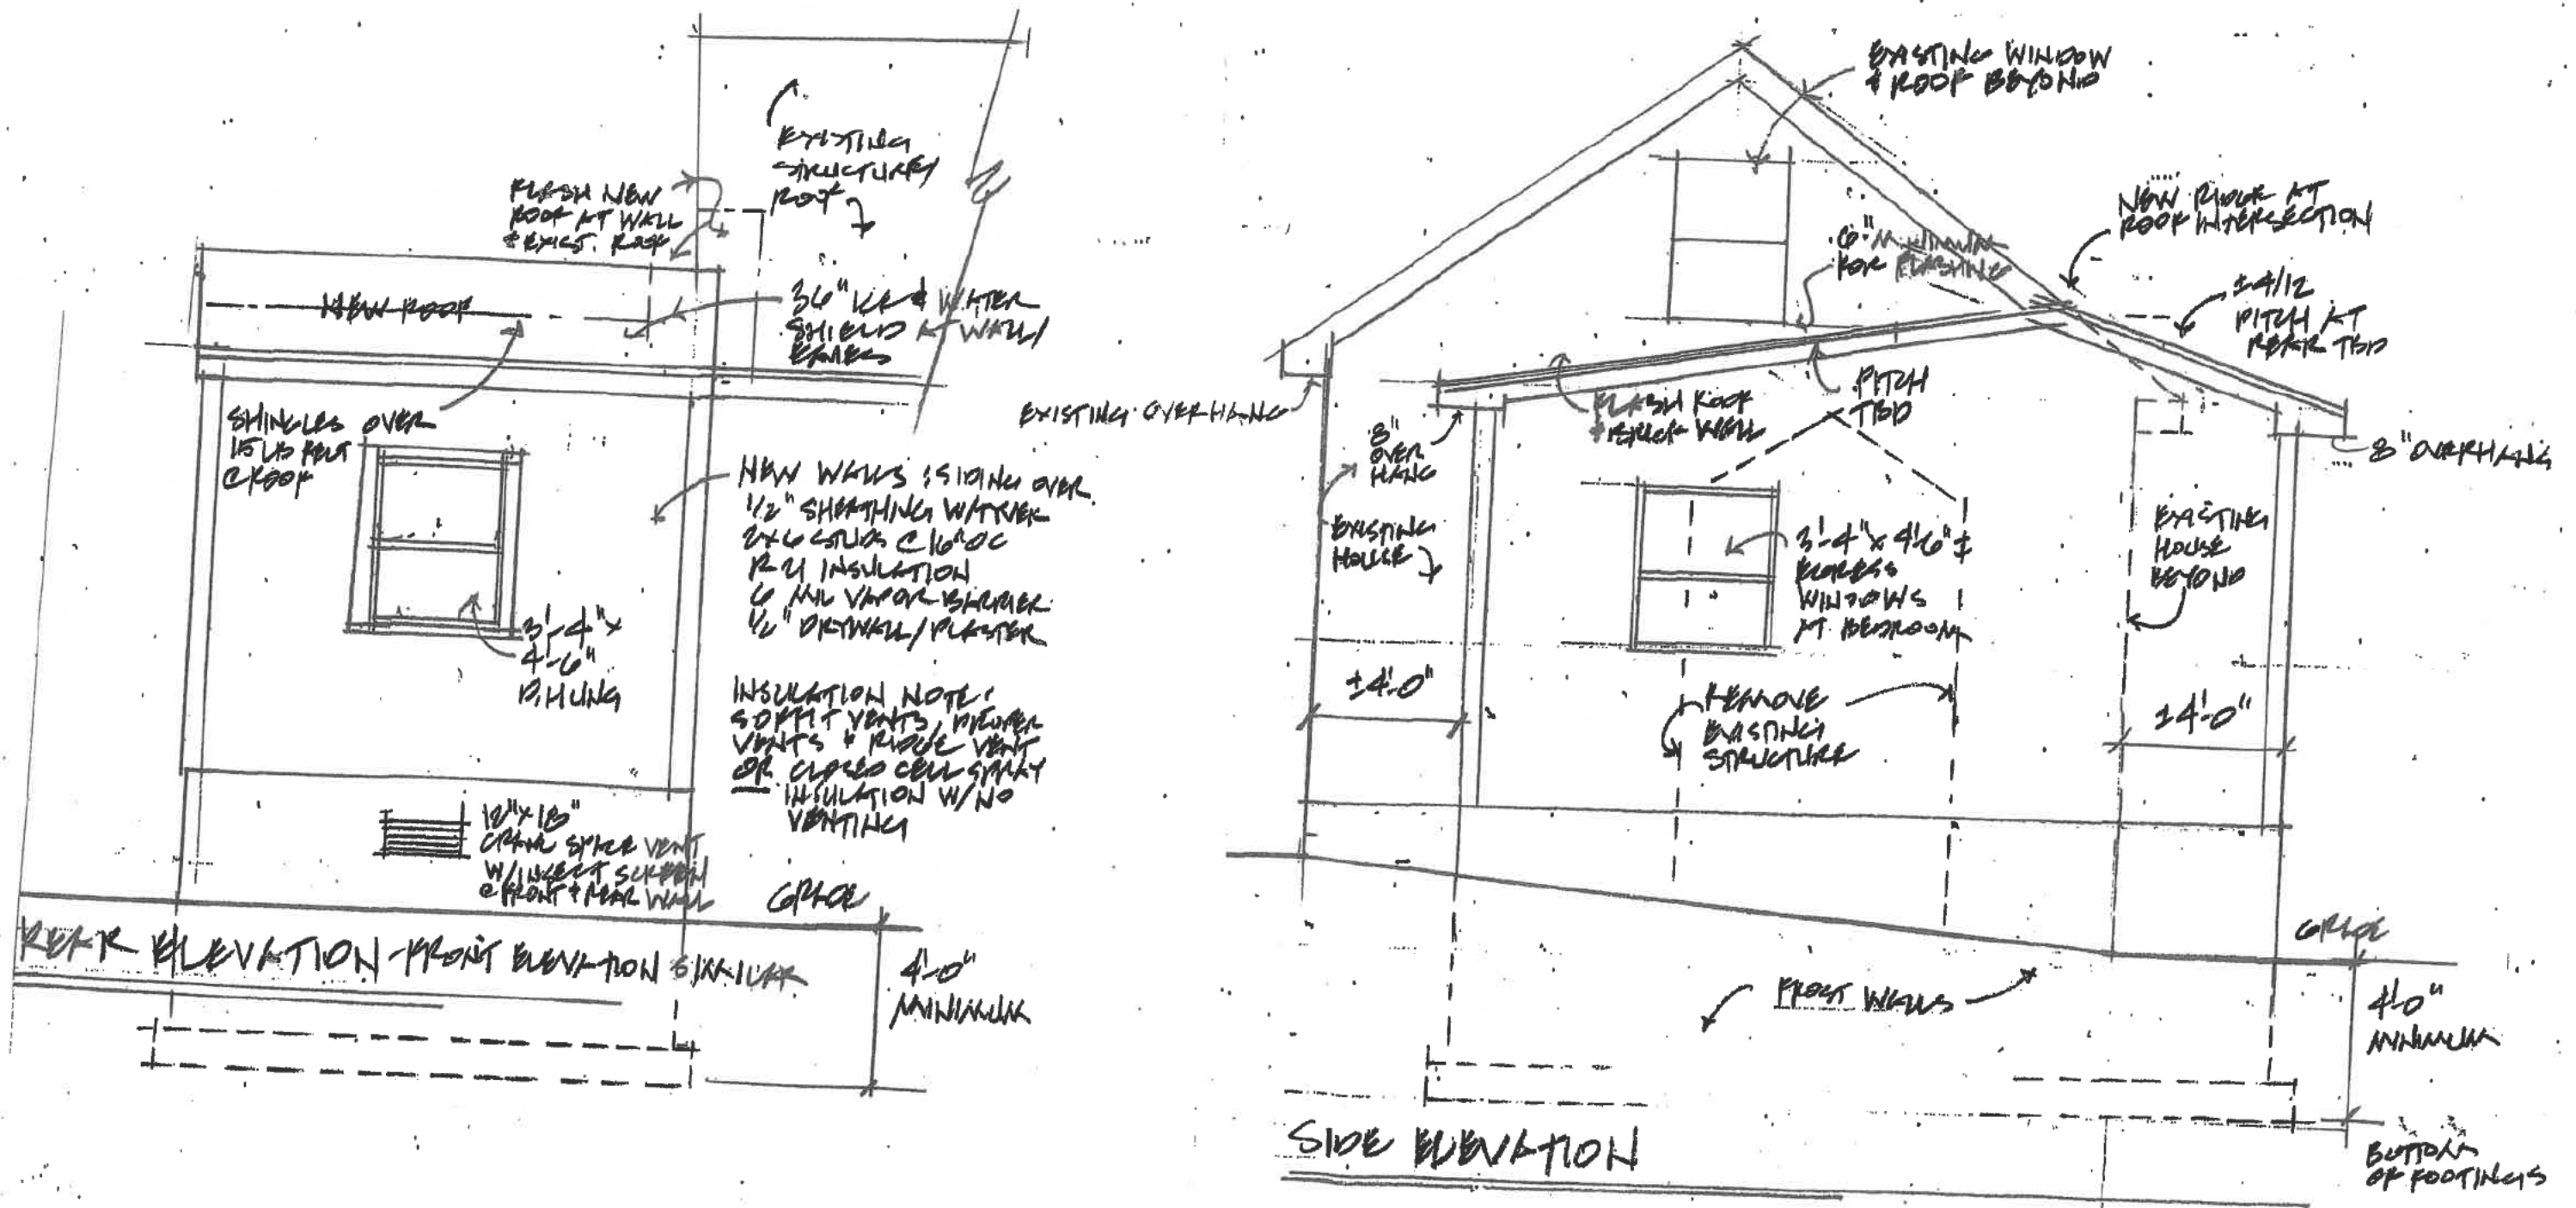 EXISTING
STRUCTURE/
ROOF
FLASH NEW
ROOF AT WALL
+ EXIST. ROOF
NEW ROOF
36" ICE & WATER
SHIELD @ WALL/
EAVES
SHINGLES OVER
15 LB FELT
@ ROOF
NEW WALLS : SIDING OVER
1/2" SHEATHING W/TYVEK
2x6 STUDS @ 16" OC
R 21 INSULATION
6 MIL VAPOR BARRIER
1/2" DRYWALL/PLASTER
3'-4" x
4'-6"
D. HUNG
INSULATION NOTE:
SOFFIT VENTS, PROPER
VENTS + RIDGE VENT
OR CLOSED CELL SPRAY
INSULATION W/NO
VENTING
12" x 18"
CRAWL SPACE VENT
W/INSECT SCREEN
@ FRONT + REAR WALL
GRADE
REAR ELEVATION - FRONT ELEVATION SIMILAR
4'-0"
MINIMUM
EXISTING WINDOW
+ ROOF BEYOND
NEW RIDGE AT
ROOF INTERSECTION
6" MINIMUM
FOR FLASHING
±4/12
PITCH AT
REAR TBD
EXISTING OVERHANG
8"
OVER
HANG
FLASH ROOF
+ BRICK WALL
PITCH
TBD
8" OVERHANG
EXISTING
HOUSE
3'-4" x 4'-6" ±
EGRESS
WINDOWS
AT BEDROOM
EXISTING
HOUSE
BEYOND
±4'-0"
REMOVE
EXISTING
STRUCTURE
±4'-0"
GRADE
FROST WALLS
4'-0"
MINIMUM
SIDE ELEVATION
BOTTOM
OF FOOTINGS